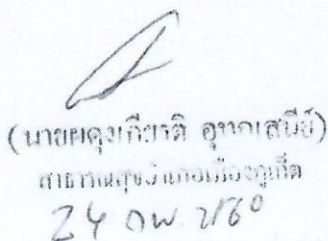 (นายผดุงเกียรติ อุทกเสนีย์)
สาธารณสุขอำเภอเมืองภูเก็ต
24 กพ. 2560